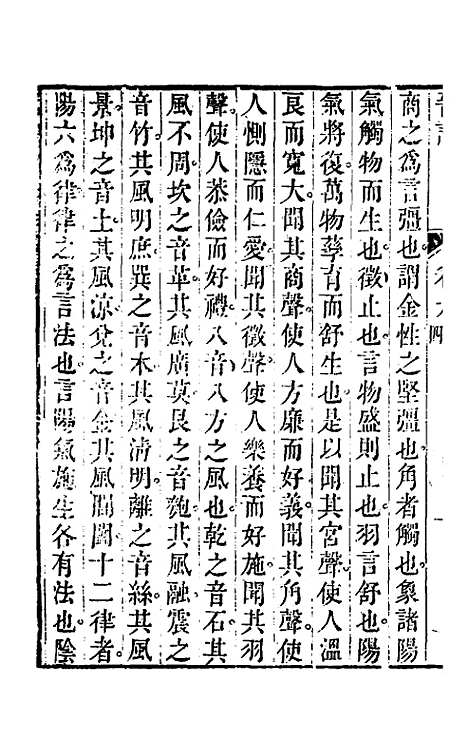 商之爲言彊也謂金性之堅彊也角者觸也象諸陽
氣觸物而生也徵止也言物盛則止也羽言舒也陽
氣將復萬物孳育而舒生也是以聞其宮聲使人溫
良而寬大聞其商聲使人方廉而好義聞其角聲使
人惻隱而仁愛聞其徵聲使人樂養而好施聞其羽
聲使人恭儉而好禮八音八方之風也乾之音石其
風不周坎之音革其風廣莫艮之音匏其風融震之
音竹其風明庶巽之音木其風淸明離之音絲其風
景坤之音土其風涼兌之音金其風閶闔十二律者
陽六爲律律之爲言法也言陽氣施生各有法也陰